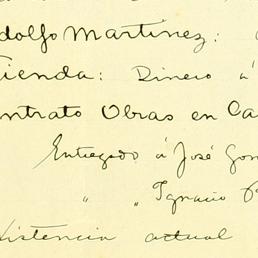 dolfo Martinez:
Tienda: Dinero á
ntrato Obras en Ca
Entregado á José Gon
" " Ignacio
xistencia actual